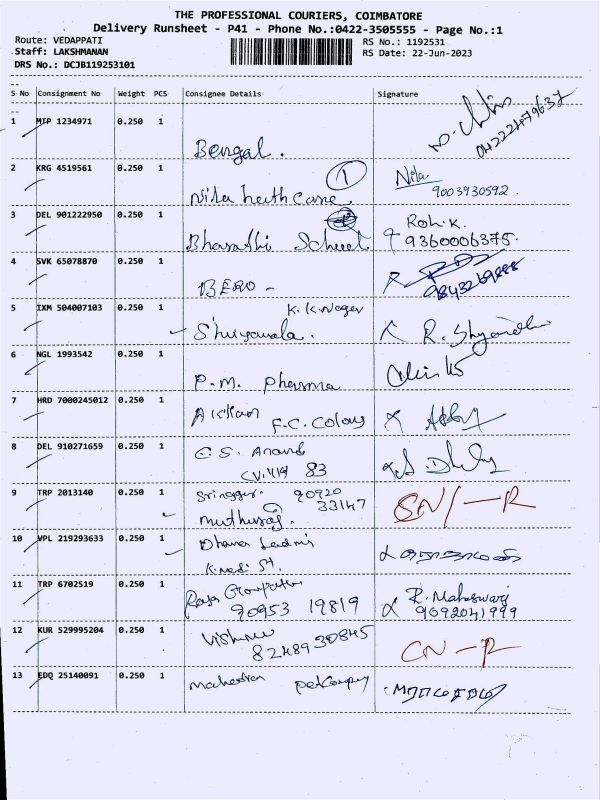 THE PROFESSIONAL COURIERS, COIMBATORE
Delivery Runsheet - P41 - Phone No.:0422-3505555 - Page No.:1
Route: VEDAPPATI
Staff: LAKSHMANAN
DRS No.: DCJB119253101
RS No.: 1192531
RS Date: 22-Jun-2023
S No Consignment No Weight PCS Consignee Details Signature
1 MTP 1234971 0.250 1 Bengal.
2 KRG 4519561 0.250 1 Nila heath Care 1 Nila 9003930592
3 DEL 901222950 0.250 1 Bharathi School Roh.K. 9360006375
4 SVK 65078870 0.250 1 BERO -
5 IXM 504007103 0.250 1 K.K.Nager R. Shyamala
6 NGL 1993542 0.250 1 P.M. Pharma
7 HRD 7000245012 0.250 1 F.C. Colony
8 DEL 910271659 0.250 1 C.S. Anand 83
9 TRP 2013140 0.250 1 90920 33147 Muthuraj. SN/-R
10 VPL 219293633 0.250 1
11 TRP 6702519 0.250 1 90953 19819 R. Maheswari 9092041999
12 KUR 529995204 0.250 1 Vishnu 8248930845 CN-R
13 EDQ 25140091 0.250 1